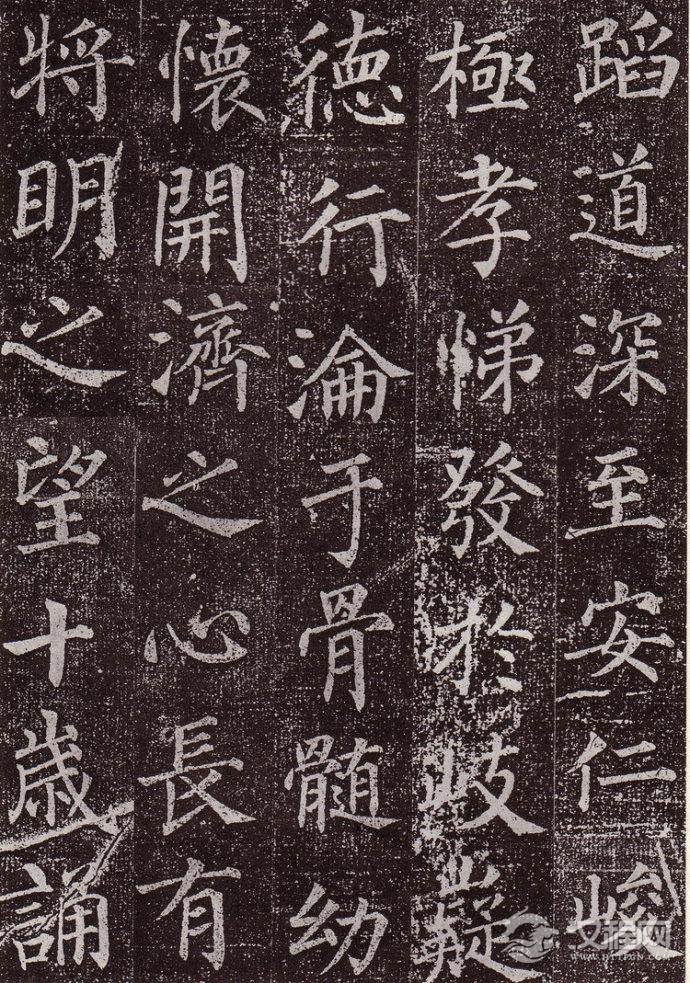 蹈道深至安仁峻
極孝悌發於岐嶷
德行淪于骨髓幼
懷開濟之心長有
將明之望十歲誦